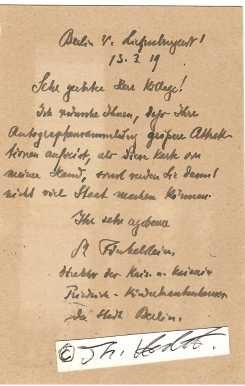 Berlin
13.3.19
Sehr geehrter Herr Kollege!
Ich wünsche Ihnen, dass Ihre
Autographensammlung größere Attrak-
tionen aufweist, als diese Karte von
meiner Hand, sonst werden Sie damit
nicht viel Staat machen können.
Ihr sehr ergebener
H. Finkelstein,
Direktor des Kais. u. Kaiserin
Friedrich-Kinderkrankenhauses
der Stadt Berlin.
©